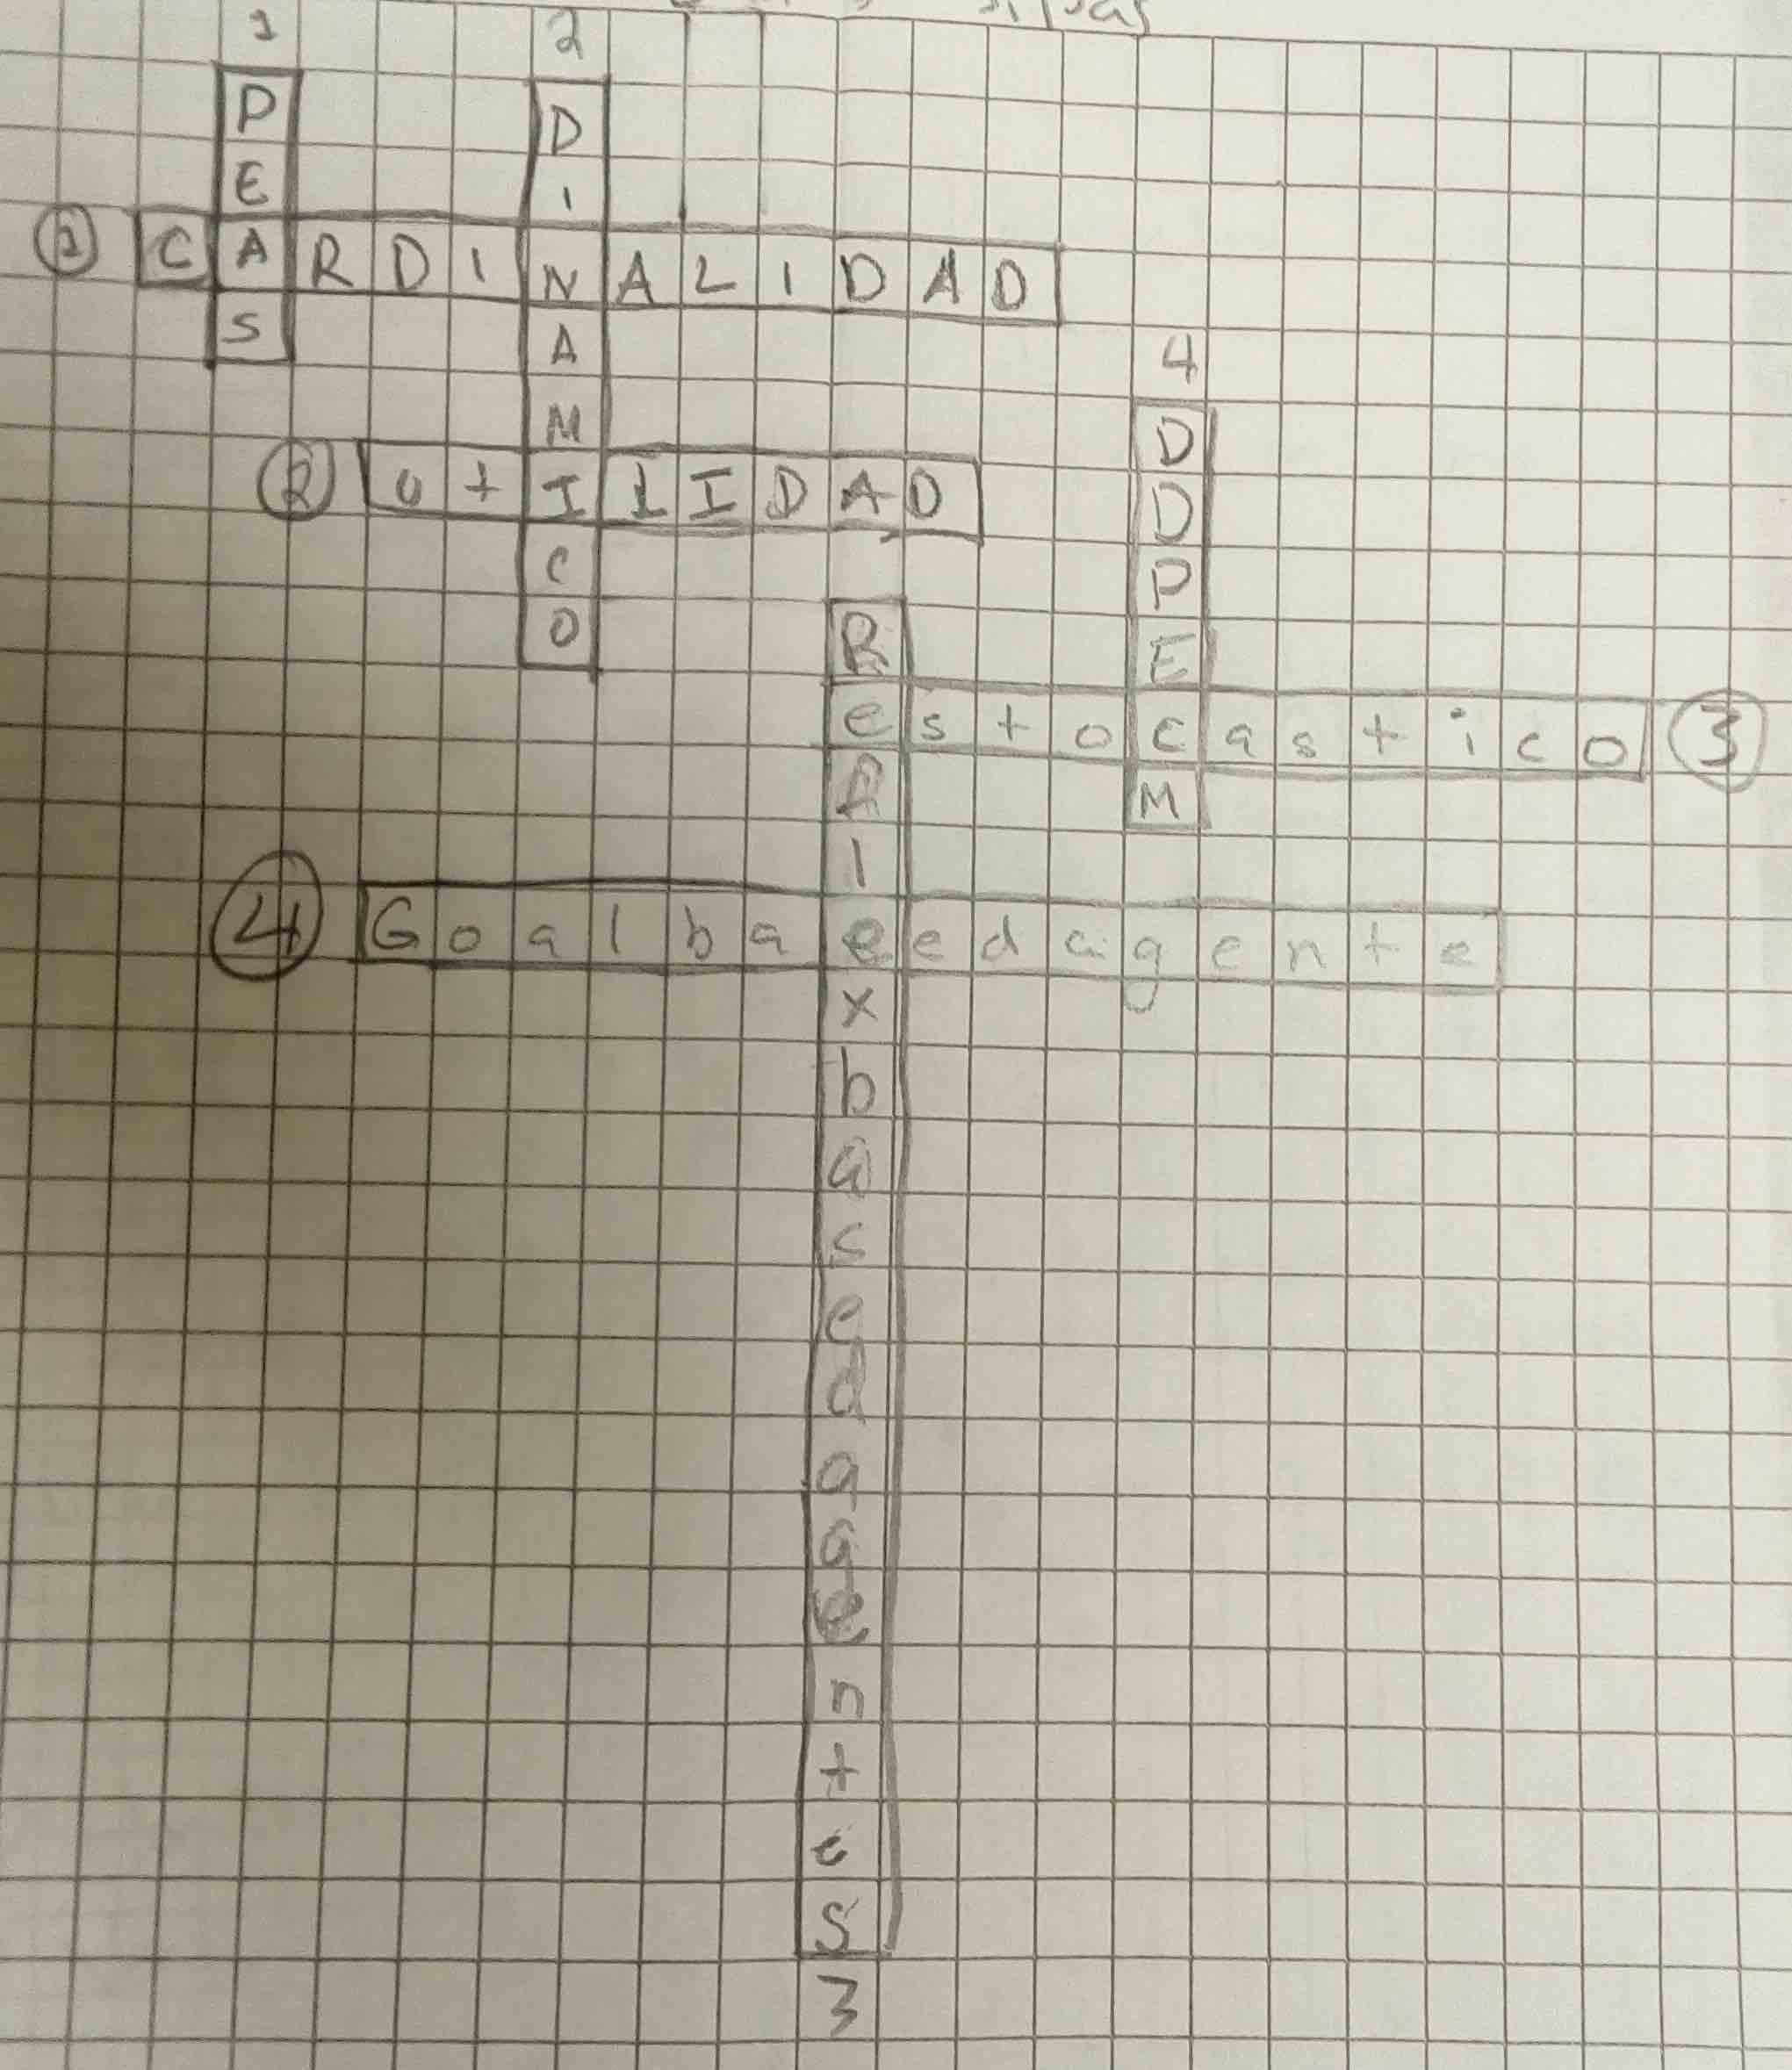 1 PEAS
2 DINAMICO
① CARDINALIDAD
4 DDPECM
② UtILIDAD
Reflexbasedagentes 3
estocastico ③
④ Goalbaeedagente